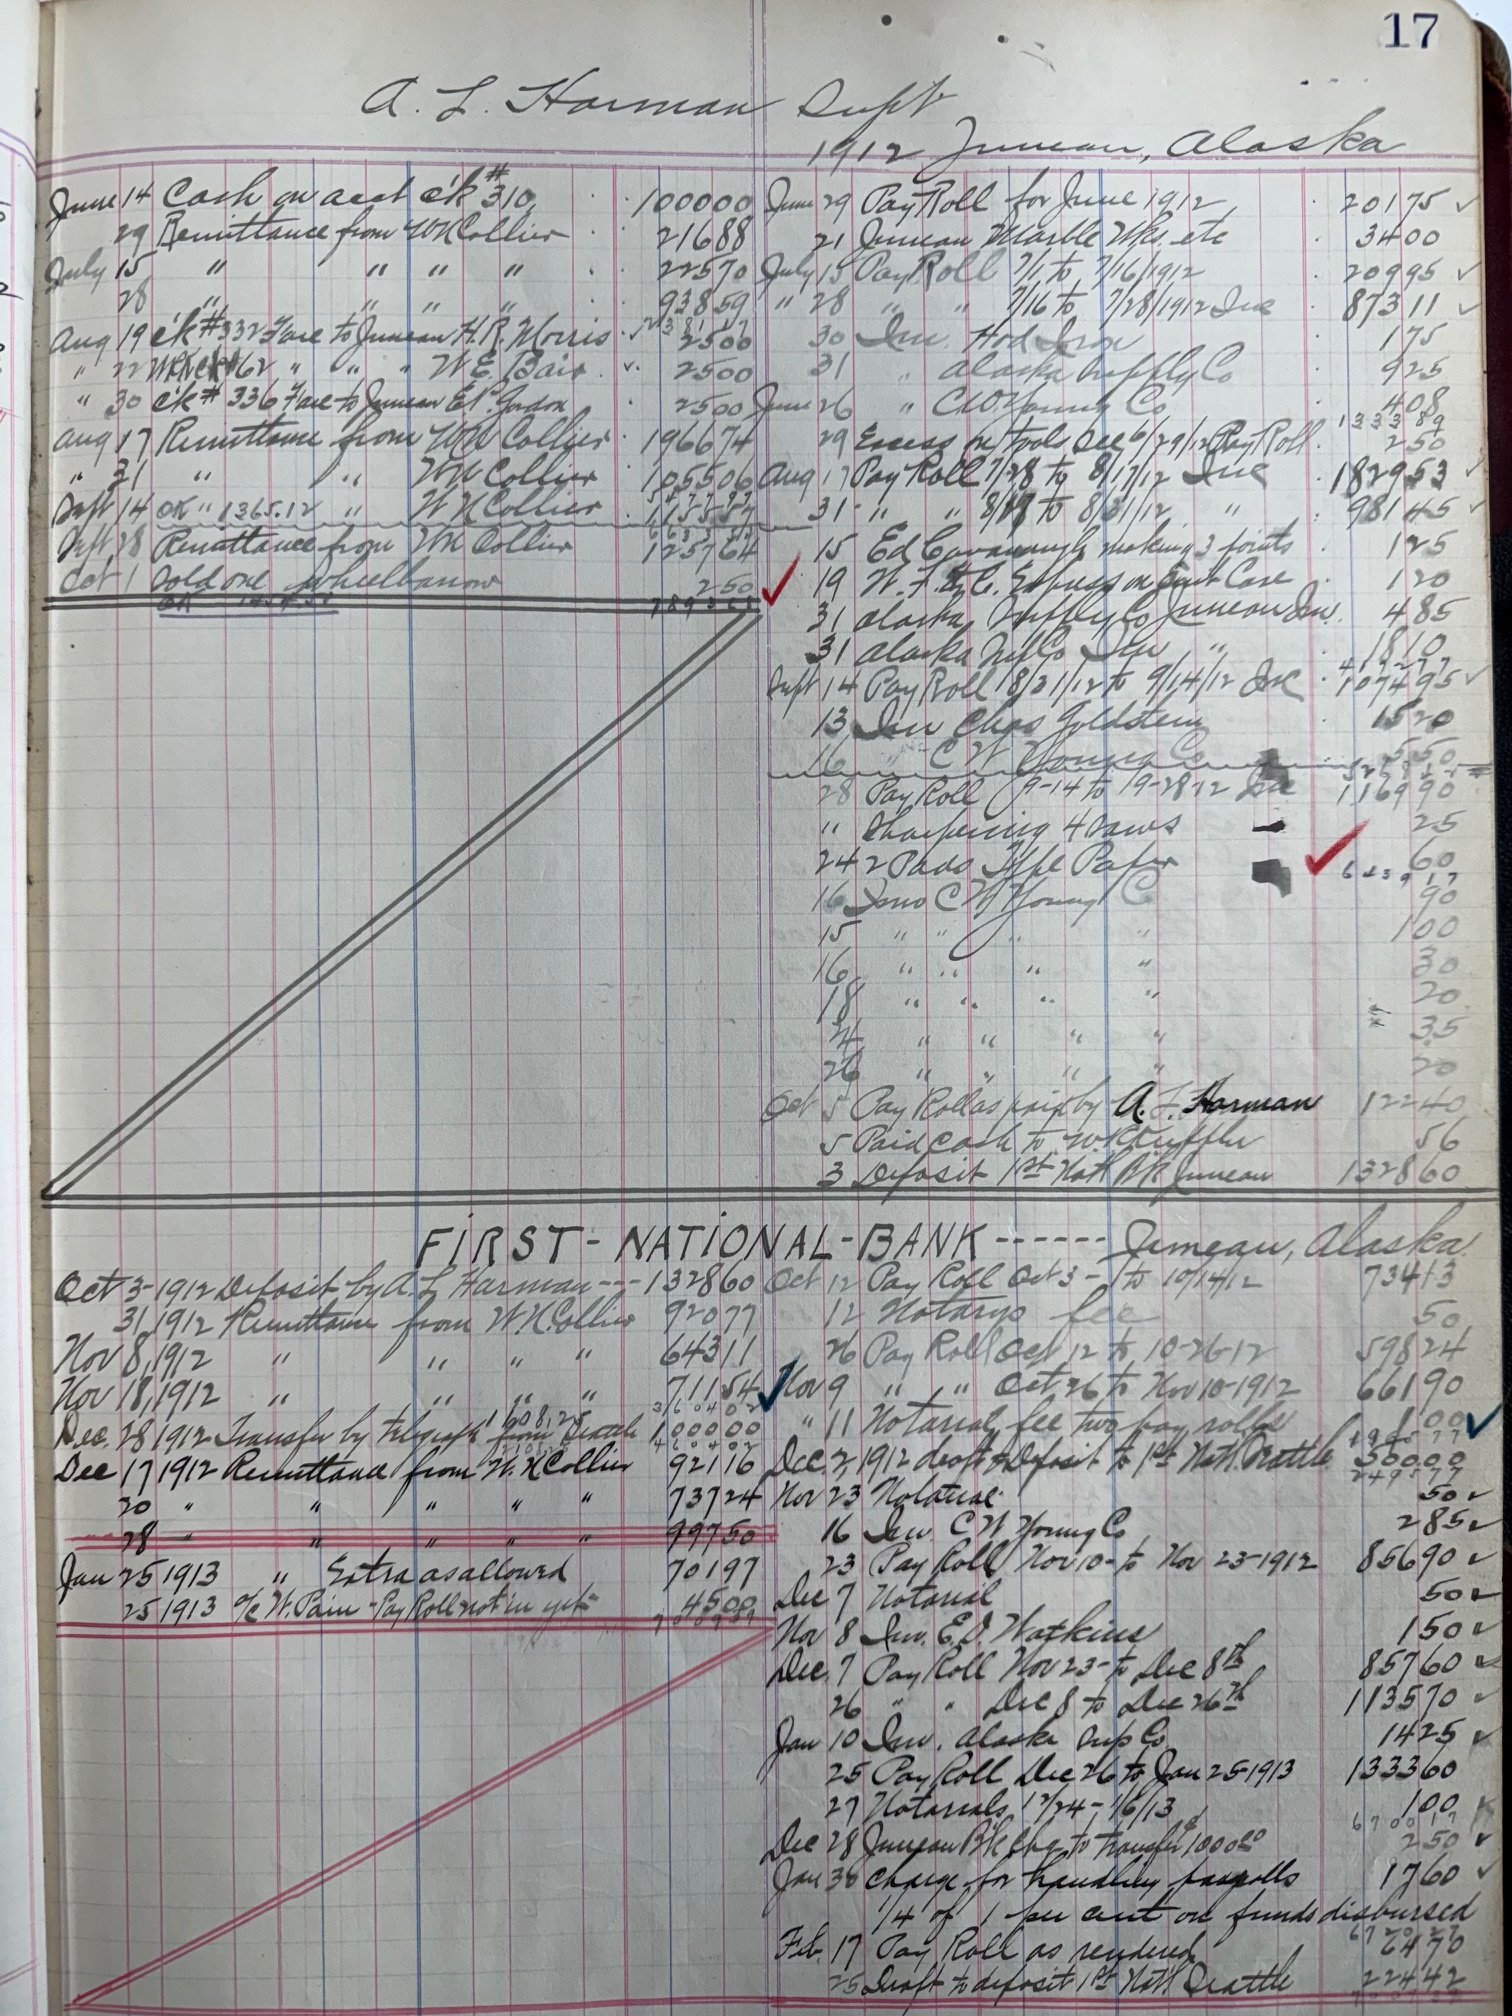 17
A. L. Harman Supt
1912 Juneau, Alaska
June 14 Cash on acct c'k #310 100000
29 Remittance from W N Collier 21688
July 15 " " " " 22570
28 " " " " 93859
Aug 19 c'k #332 Fare to Juneau H. R. Morris 2500
" 22 c'k #62 " " " W E Bair 2500
" 30 c'k # 336 Fare to Juneau E P. Gordon 2500
Aug 17 Remittance from W N Collier 196674
" 31 " " W N Collier 105506
Sept 14 OK " 1365.12 " W N Collier
Sept 28 Remittance from W N Collier 125764
Oct 1 Sold one wheelbarrow 250
June 29 Pay Roll for June 1912 20175
21 Juneau Marble Wks. etc 3400
July 15 Pay Roll 7/1 to 7/16/1912 20995
" 28 " " 7/16 to 7/28/1912 Inc 87311
30 Inv. Hod Iron 175
31 " Alaska Supply Co 925
June 26 " C W Young Co 408
133389
29 Excess on tools Dec 6/29/12 Pay Roll 250
Aug 17 Pay Roll 7/28 to 8/17/12 Inc 182953
31 " " 8/17 to 8/31/12 " 98145
15 Ed Cavanaugh making 3 points 125
19 W. F. & C. Express on Inst Case 120
31 Alaska Supply Co Juneau Inv. 485
31 Alaska Sup Co Inv " 1810
Sept 14 Pay Roll 8/31/12 to 9/14/12 Inc 107495
13 Inv Chas Goldstein 1520
16 " C W Young Co 550
28 Pay Roll 9-14 to 9-28-12 Inc 116990
" Sharpening 4 saws 25
24 2 Pads Type Paper 60
16 Inv C W Young C 90
15 " " " " 100
16 " " " " 30
18 " " " " 20
24 " " " " 35
26 " " " " 20
Oct 5 Pay Roll as paid by A. L. Harman 12240
5 Paid cash to 56
3 Deposit 1st Natl B'k Juneau 132860
FIRST-NATIONAL-BANK ------ Juneau, Alaska.
Oct 3-1912 Deposit by A. L Harman --- 132860
31, 1912 Remittance from W. N. Collier 92077
Nov 8, 1912 " " " " 64311
Nov 18, 1912 " " " " 71154
360402
Dec. 28 1912 Transfer by Telegraph from Seattle 100000
460402
Dec 17 1912 Remittance from W. N Collier 92116
20 " " " " " 73724
28 " " " " " 99750
Jan 25 1913 " Extra as allowed 70197
25 1913 a/c W. Pain - Pay Roll not in yet 4500
Oct 12 Pay Roll Oct 3 - to 10/14/12 73413
12 Notarys fee 50
26 Pay Roll Oct 12 to 10-26-12 59824
Nov 9 " " Oct 26 to Nov 10-1912 66190
" 11 Notarial fee two pay rolls 100
199577
Dec. 2, 1912 draft & Deposit to 1st Natl. Seattle 50000
249577
Nov 23 Notarial 50
16 Inv. C W Young Co 285
23 Pay Roll Nov 10 - to Nov 23-1912 85690
Dec 7 Notarial 50
Nov 8 Inv. E. J. Watkins 150
Dec. 7 Pay Roll Nov 23 - to Dec 8th 85760
26 " " Dec 8 to Dec 26th 113570
Jan 10 Inv. Alaska Sup Co 1425
25 Pay Roll Dec 26 to Jan 25-1913 133360
27 Notarials 12/24 - 1/6/13 100
670017
Dec 28 Juneau B'k chg. to transfer $1000.00 250
Jan 30 Charge for handling payrolls 1760
1/4 of 1 per cent on funds disbursed
672027
Feb. 17 Pay Roll as rendered 6470
25 Draft to deposit 1st Natl. Seattle 22442